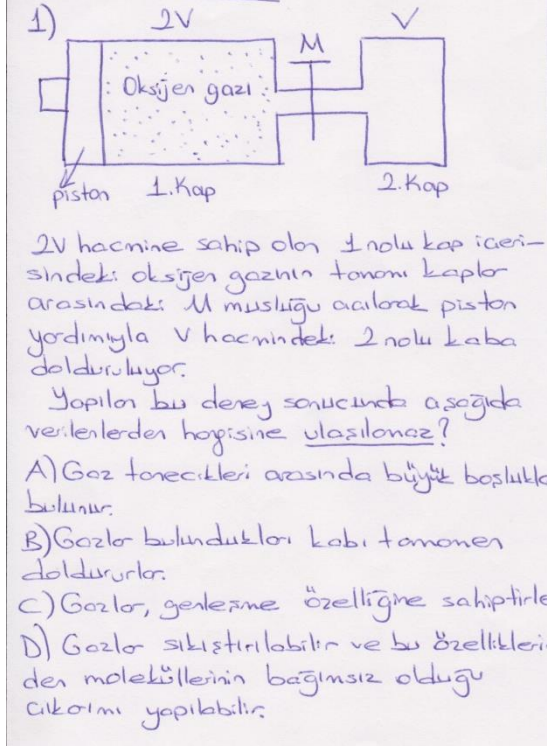 1)
2V
M
V
Oksijen gazı
piston
1. Kap
2. Kap
2V hacmine sahip olan 1 nolu kap içeri-
sindeki oksijen gazının tamamı kaplar
arasındaki M musluğu açılarak piston
yardımıyla V hacmindeki 2 nolu kaba
dolduruluyor.
Yapılan bu deney sonucunda aşağıda
verilenlerden hangisine ulaşılamaz?
A) Gaz tanecikleri arasında büyük boşlukla
bulunur.
B) Gazlar bulundukları kabı tamamen
doldururlar.
C) Gazlar, genleşme özelliğine sahiptirle
D) Gazlar sıkıştırılabilir ve bu özellikleri
den moleküllerinin bağımsız olduğu
çıkarımı yapılabilir.